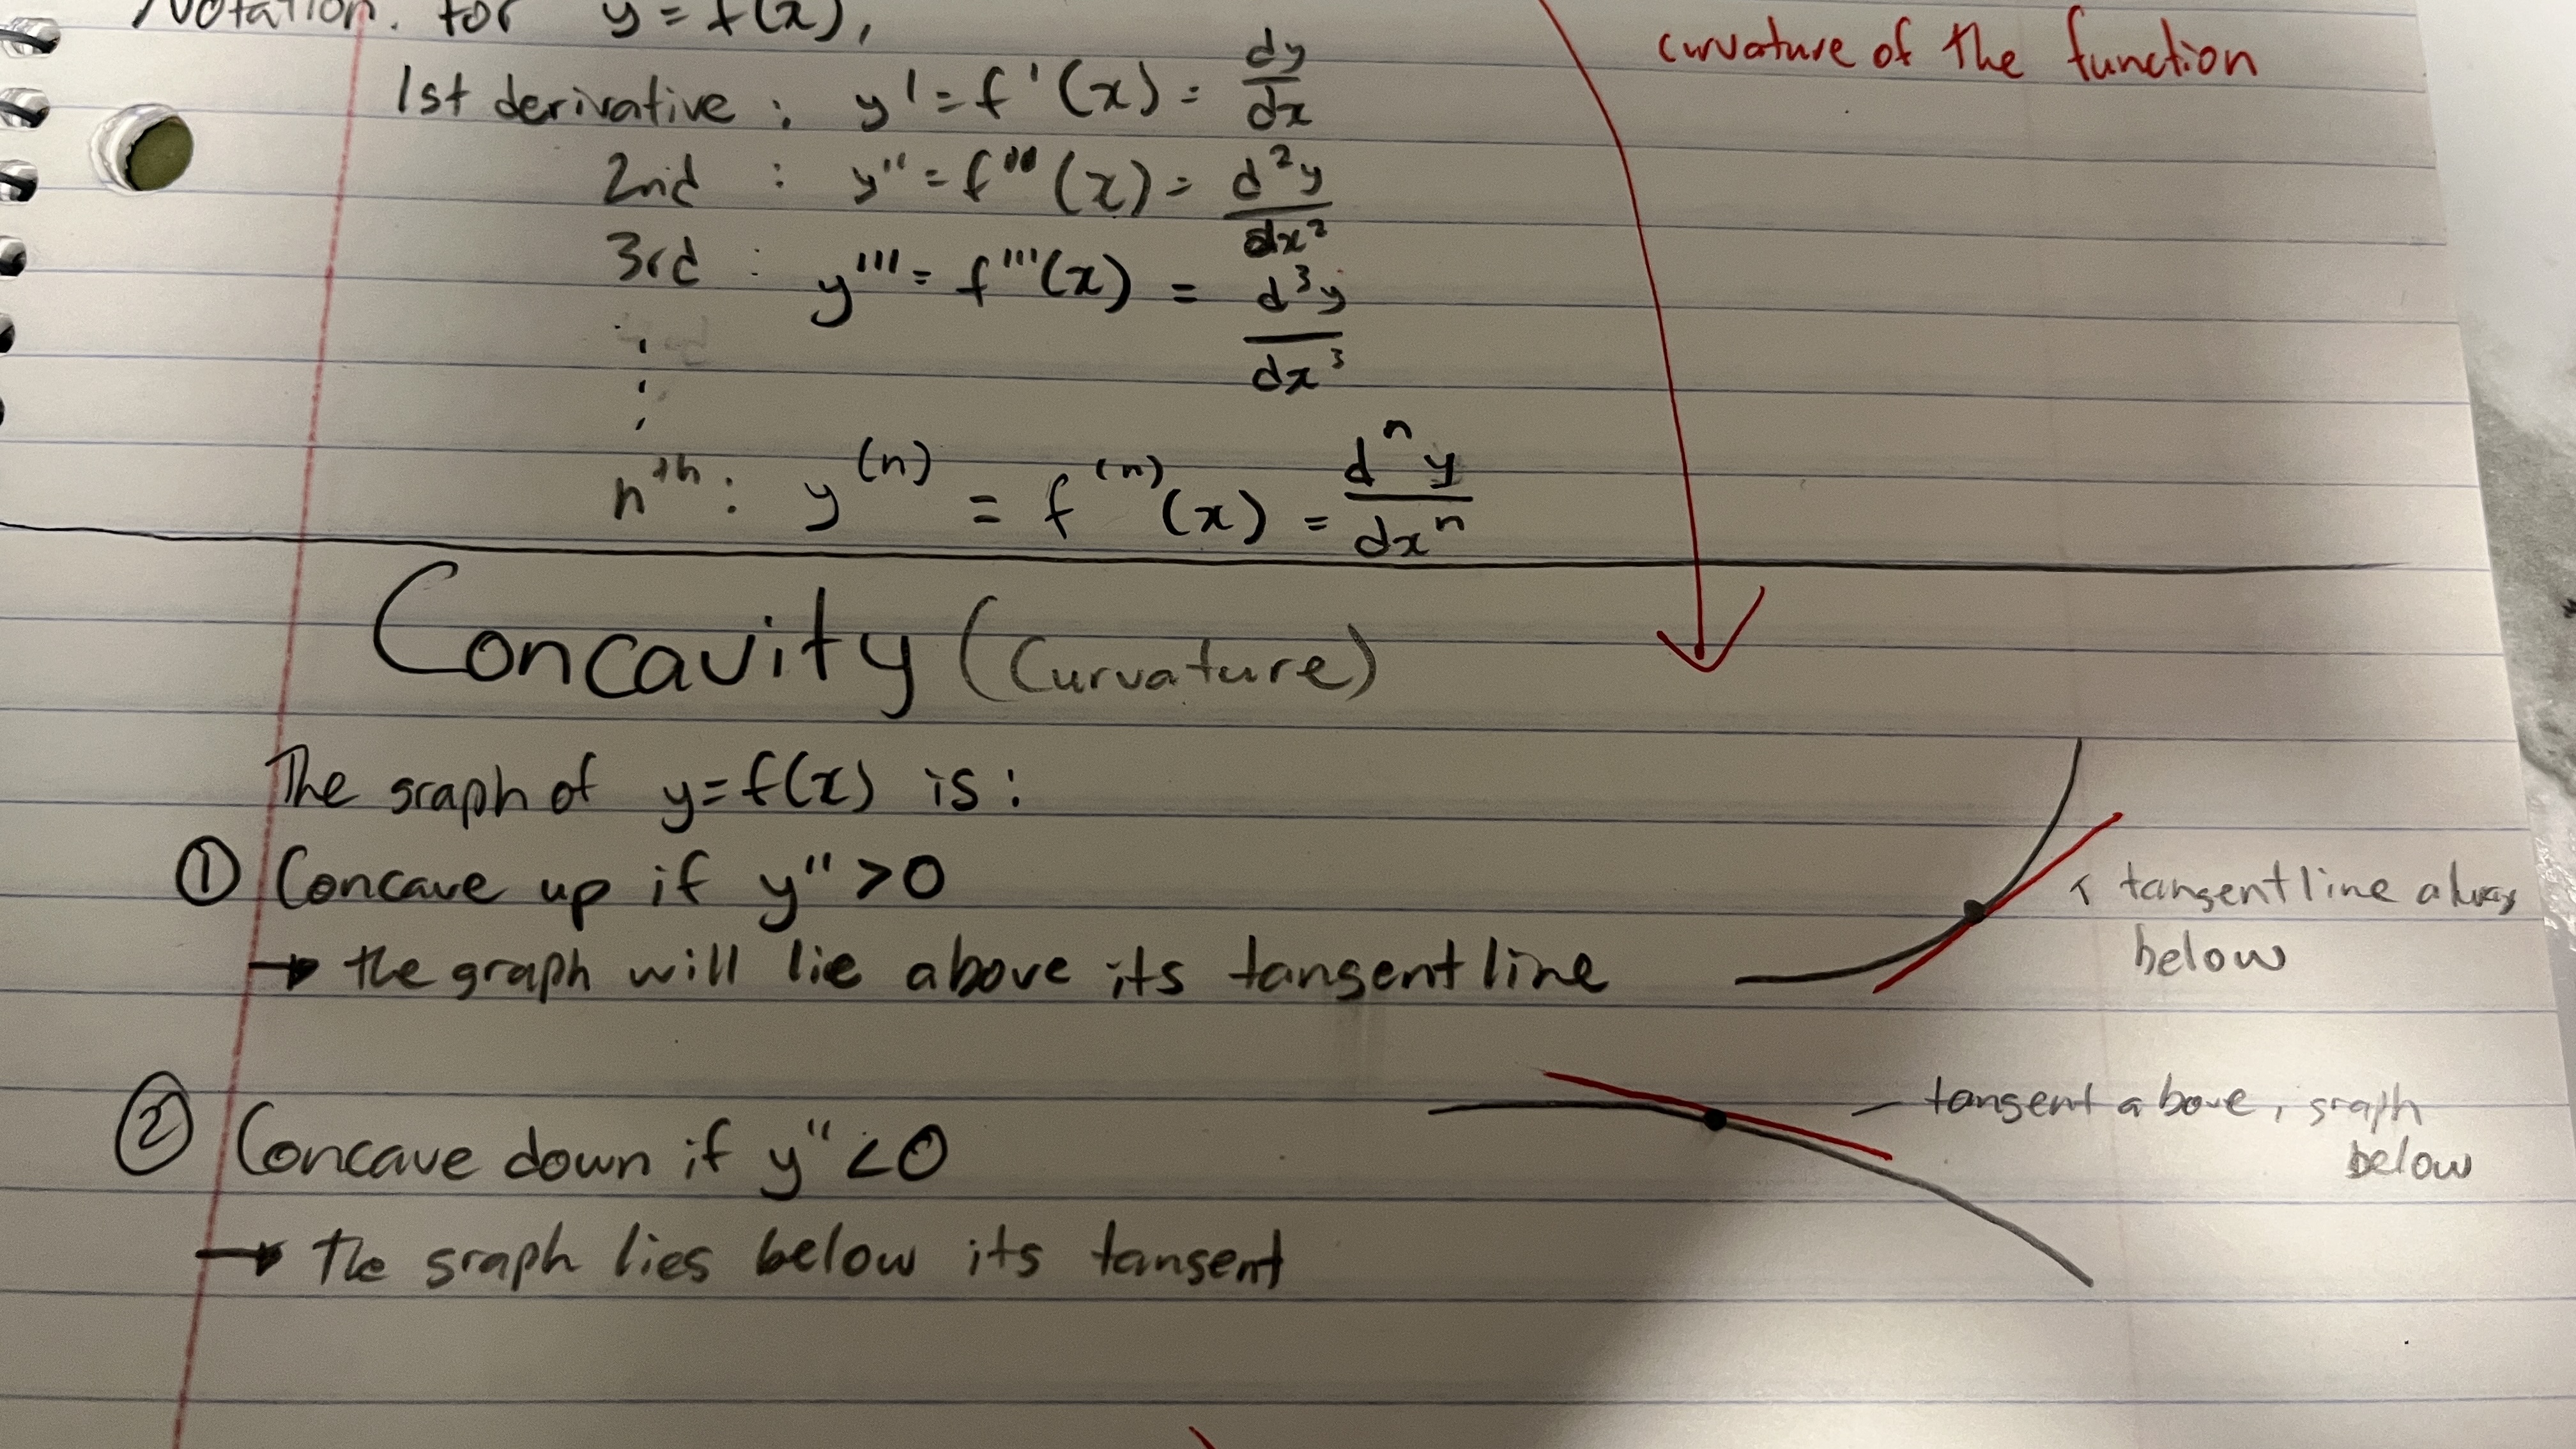 Notation. for y = f(x),
curvature of the function
1st derivative : y' = f'(x) = dy/dx
2nd : y'' = f'''(x) = d²y/dx²
3rd : y''' = f'''(x) = d³y/dx³
⋮
nᵗʰ : y⁽ⁿ⁾ = f⁽ⁿ⁾(x) = dⁿy/dxⁿ
Concavity (Curvature)
The graph of y=f(x) is:
① Concave up if y'' >0
→ the graph will lie above its tangent line
↑ tangent line always
below
② Concave down if y'' <0
→ The graph lies below its tangent
– tangent above, graph
below